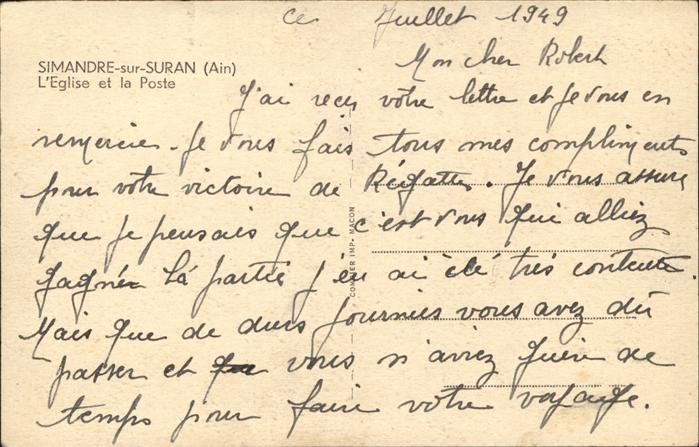 ce Juillet 1949
SIMANDRE-sur-SURAN (Ain)
L'Eglise et la Poste
Mon cher Robert
J'ai reçu votre lettre et je vous en
remercie. Je vous fais tous mes compliments
pour votre victoire de Régattes. Je vous assure
que je pensais que c'est vous qui alliez
gagnér la partie j'en ai été très contente.
Mais que de durs journées vous avez dû
passer et vous n'aviez guère de
temps pour faire votre voyage.
COMBIER IMP. MACON